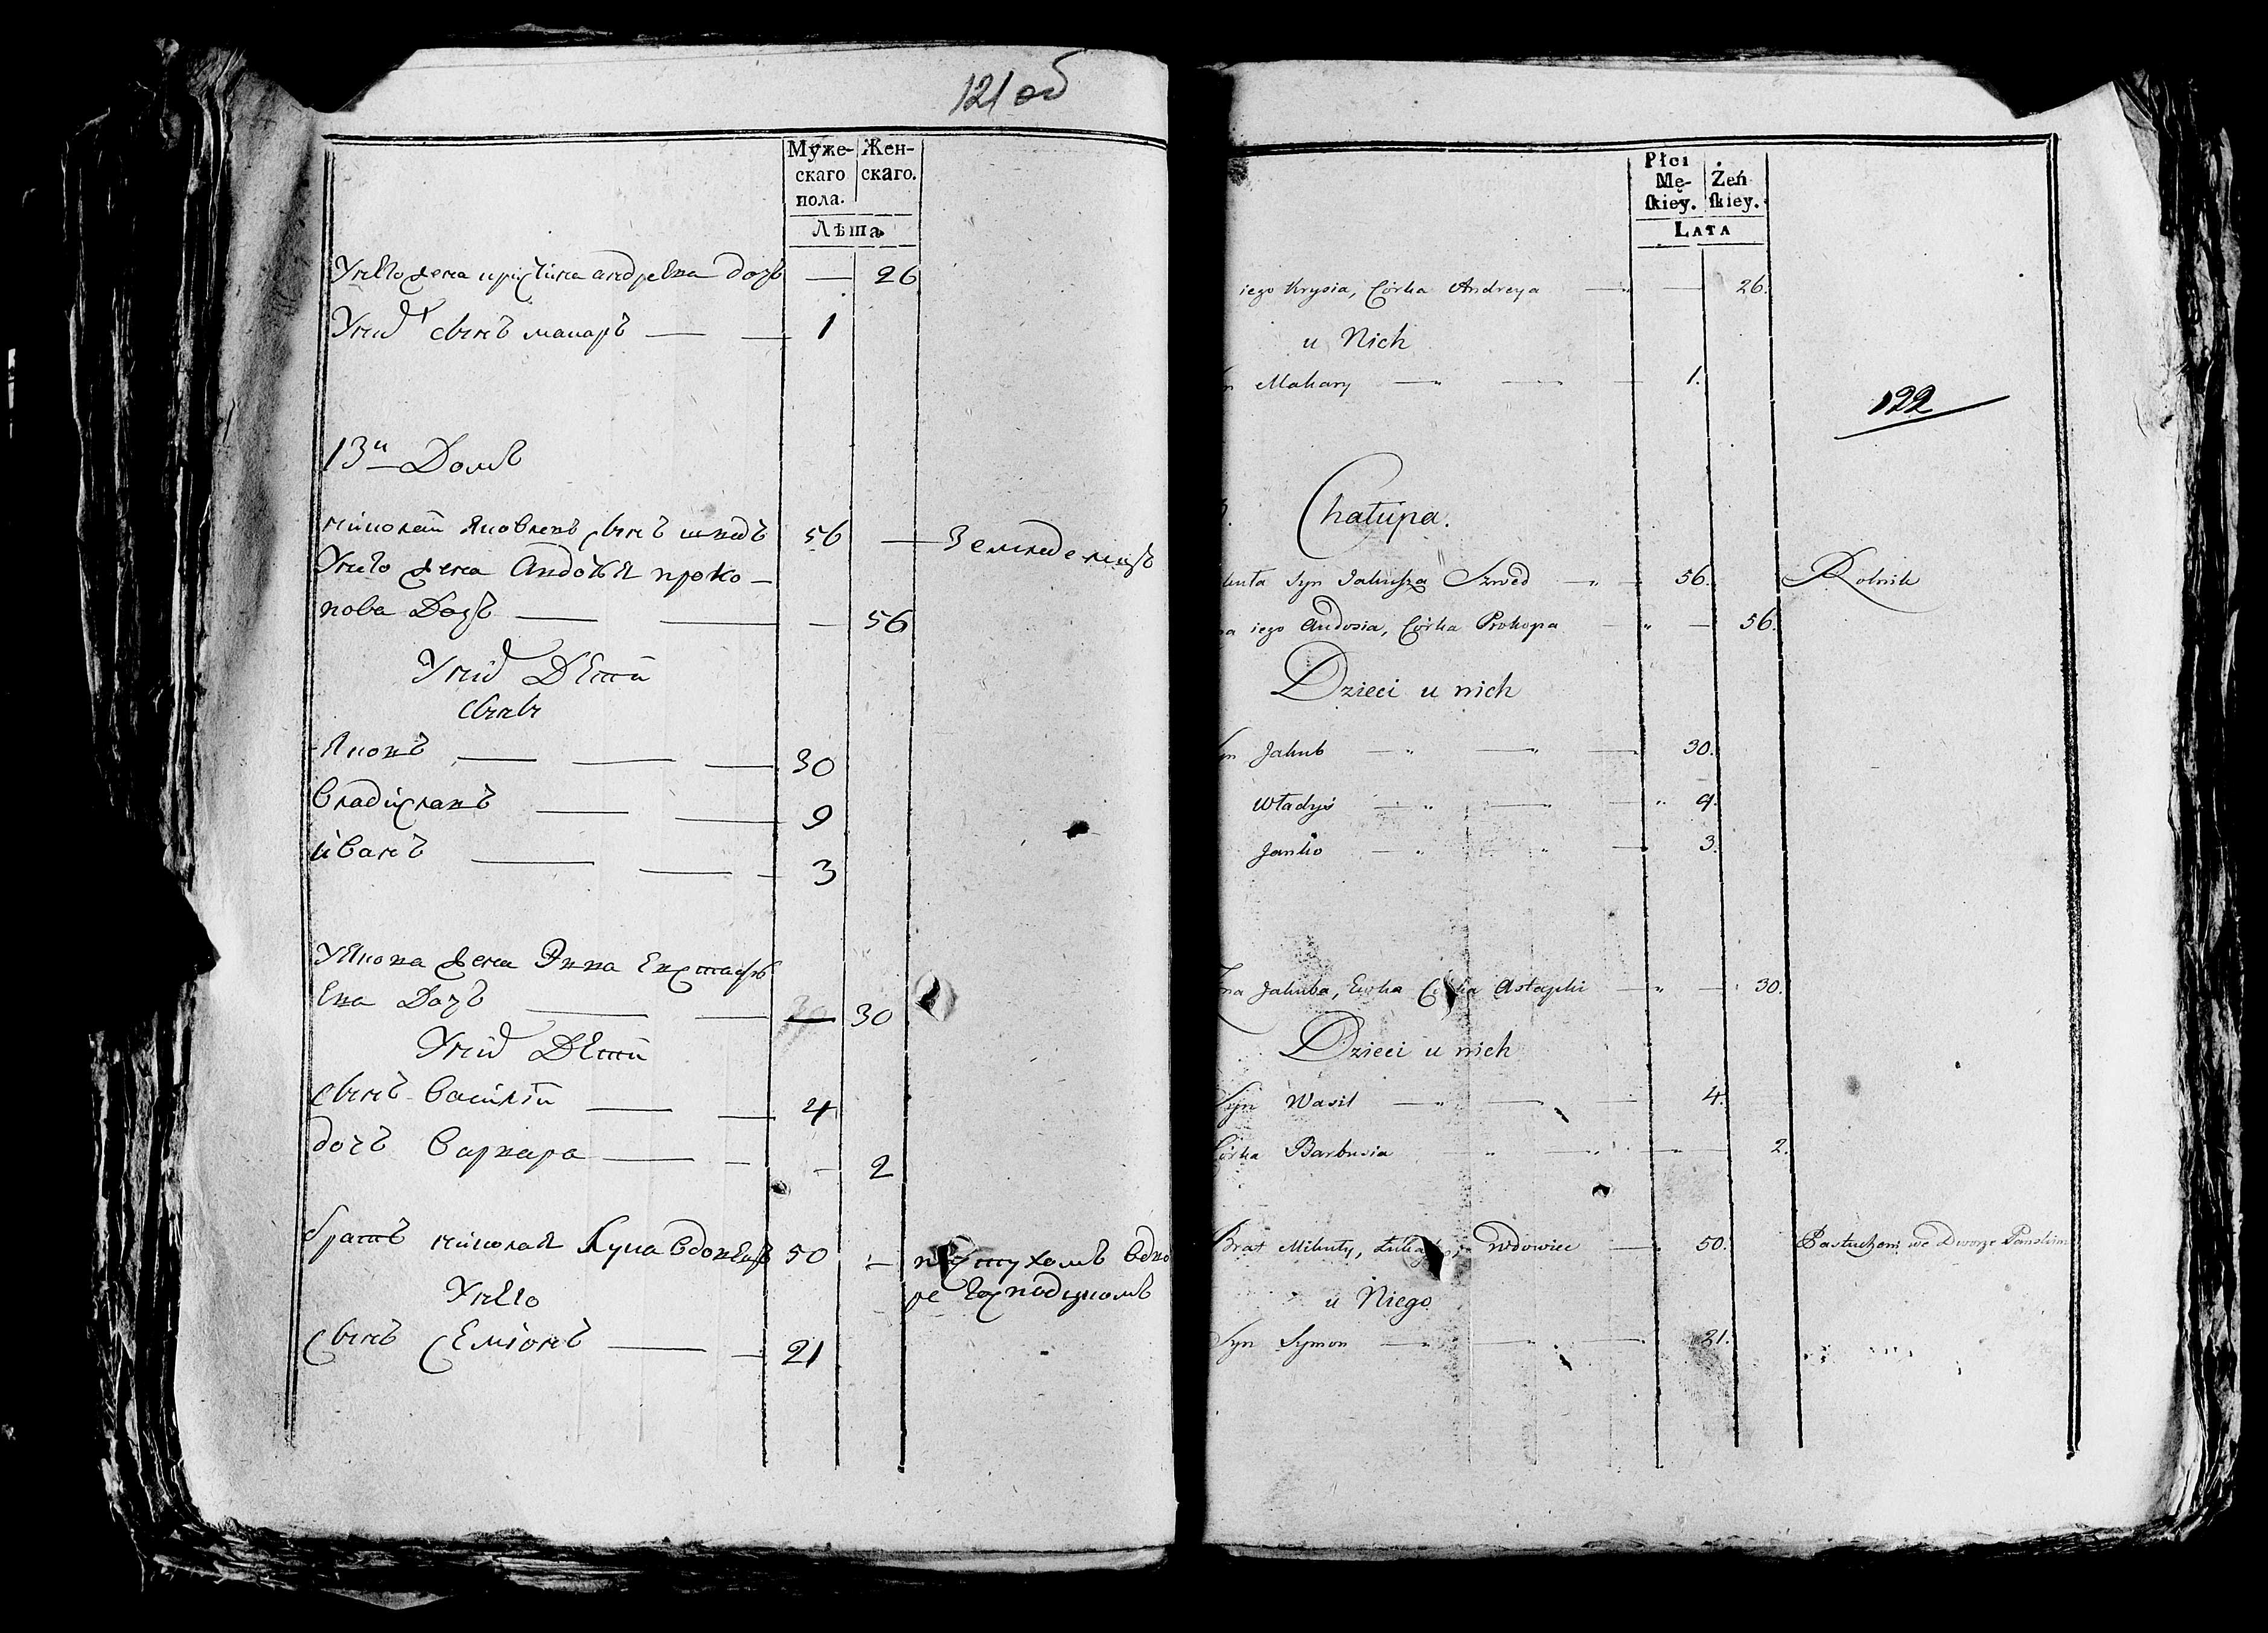 121 об
Муже- Жен-
скаго скаго.
пола.
Лѣта
Унего жена крiстина андреева дочь — 26
Унiх сынъ макаръ — — 1
13й Домъ
нiколай Яковлевъ сынъ швед 56 — Земледелецъ
Унего жена Авдотья проко-
пова Дочь — — — 56
Унiх Дети
сыны
Яковъ — — — 30
Владiславъ — — 9
иванъ — — — 3
У Якова жена Эвва Евстафь
ева Дочь — — — 30
Унiх Дети
сынъ Василiй — — 4
дочь Варвара — — - 2
братъ нiколая Лука вдовецъ 50 — пастухомъ вдво
Унего ре Господскомъ
сынъ Семiонъ — — 21
Płci
Mę- Żeń
skiey. skiey.
LATA
iego Krysia, Córka Andreya — " — 26.
u Nich
Makary — " — — 1.
122
Chałupa.
kuta Syn Jakusza Szwed — " — 56. Rolnik
iego Audosia, Córka Prokopa — " — 56.
Dzieci u nich
Jakub — " — " — 30.
Władyś — " — — " 9.
Janko — " " — 3.
na Jakuba, Ewka Córka Astapki — " — 30.
Dzieci u nich
Syn Wasil — " — — 4.
Córka Barbusia " — " — 2.
Brat Mikuty, Wdowiec — 50. Pastuchem we Dworze Panskim
u Niego
Syn Symon — " — — 21.